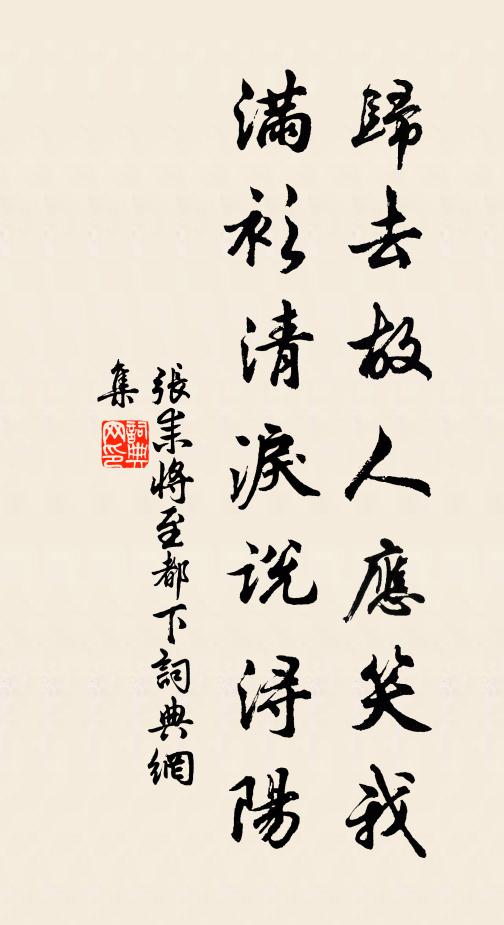 歸去故人應笑我
滿衫清淚說潯陽
張耒將至都下詞典網
集
詞典
网印